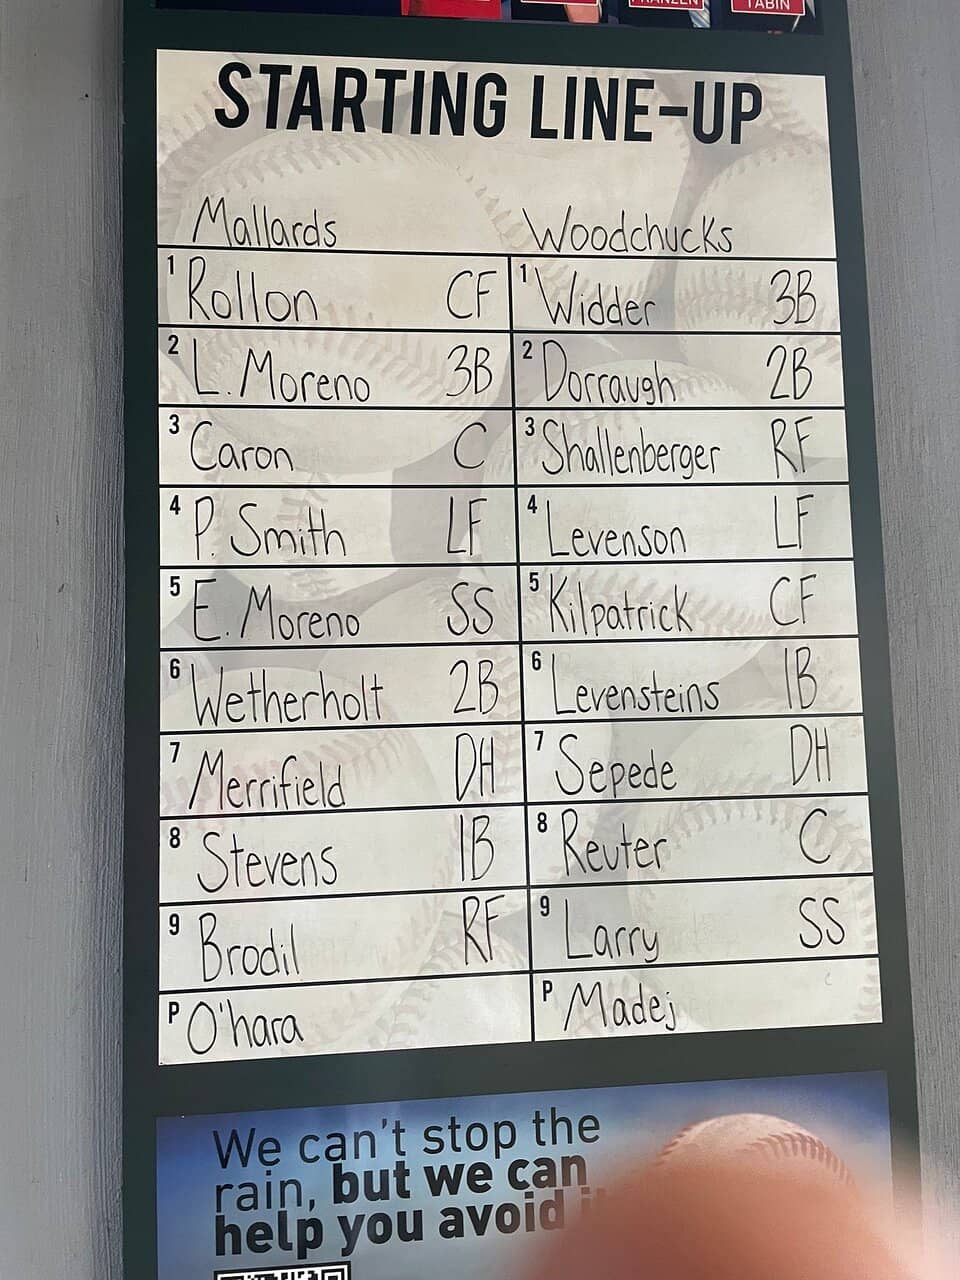 FRANZEN
TABIN
STARTING LINE-UP
Mallards Woodchucks
1 Rollon CF 1 Widder 3B
2 L. Moreno 3B 2 Dorraugh 2B
3 Caron C 3 Shallenberger RF
4 P. Smith LF 4 Levenson LF
5 E. Moreno SS 5 Kilpatrick CF
6 Wetherholt 2B 6 Levensteins 1B
7 Merrifield DH 7 Sepede DH
8 Stevens 1B 8 Reuter C
9 Brodil RF 9 Larry SS
P O'hara P Madej
We can't stop the
rain, but we can
help you avoid